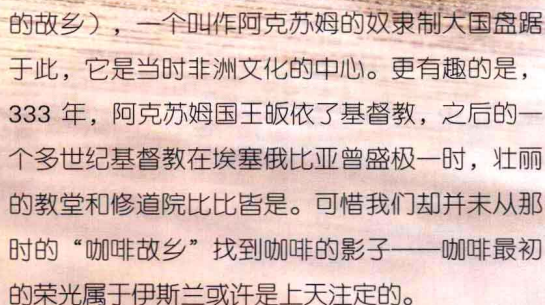 的故乡），一个叫作阿克苏姆的奴隶制大国盘踞
于此，它是当时非洲文化的中心。更有趣的是，
333 年，阿克苏姆国王皈依了基督教，之后的一
个多世纪基督教在埃塞俄比亚曾盛极一时，壮丽
的教堂和修道院比比皆是。可惜我们却并未从那
时的“咖啡故乡”找到咖啡的影子——咖啡最初
的荣光属于伊斯兰或许是上天注定的。